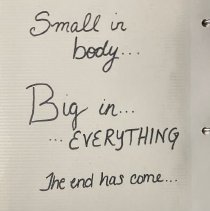 Small in
body...
Big in...
...EVERYTHING
The end has come...